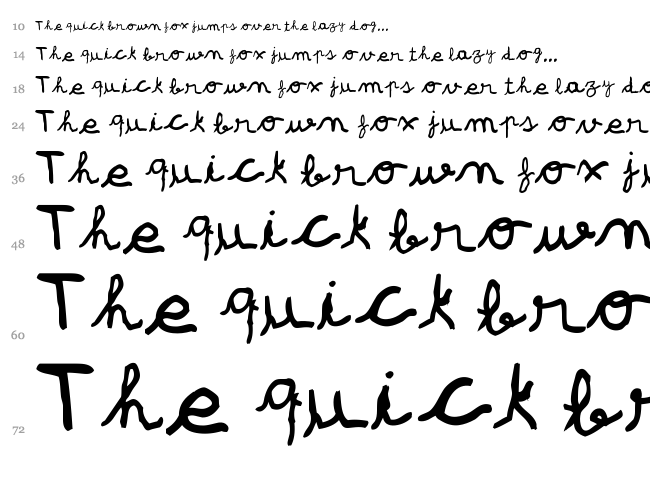 10 The quick brown fox jumps over the lazy dog...
14 The quick brown fox jumps over the lazy dog...
18 The quick brown fox jumps over the lazy do
24 The quick brown fox jumps over
36 The quick brown fox ju
48 The quick brown
60 The quick bro
72 The quick br